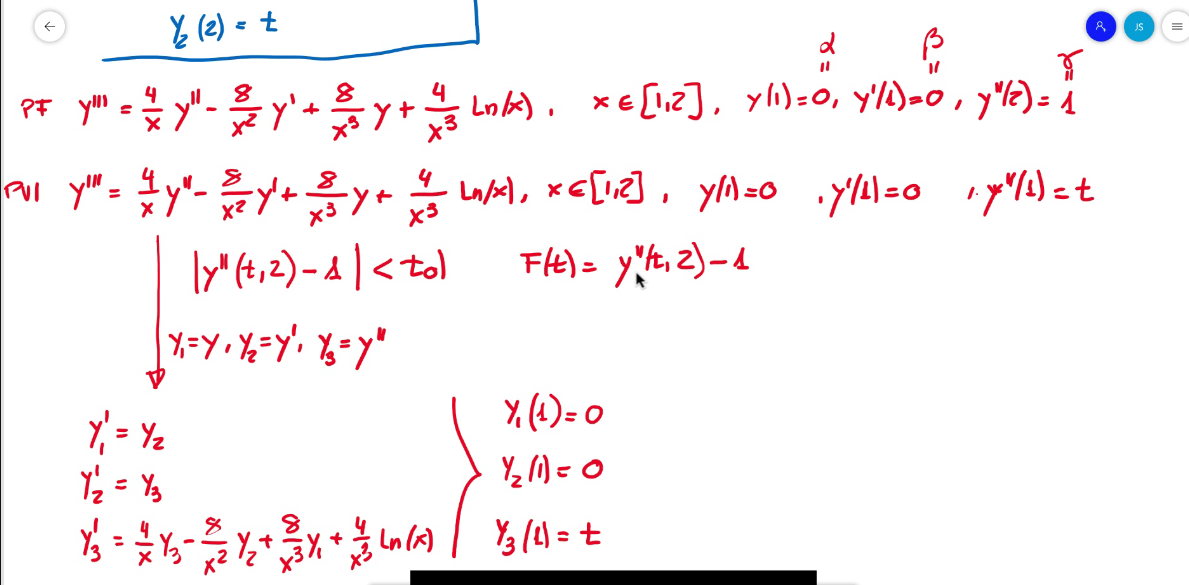 Y₂(2) = t
α β γ
" " "
PF y''' = 4/x y'' - 8/x² y' + 8/x³ y + 4/x³ Ln(x), x ∈ [1,2], y(1)=0, y'(1)=0, y''(2)=1
PVI y''' = 4/x y'' - 8/x² y' + 8/x³ y + 4/x³ Ln(x), x ∈ [1,2], y(1)=0, y'(1)=0, y''(1)=t
|y''(t,2)-1| < tol F(t) = y''(t,2)-1
Y₁=y, Y₂=y', Y₃=y''
Y₁' = Y₂ Y₁(1)=0
Y₂' = Y₃ Y₂(1)=0
Y₃' = 4/x Y₃ - 8/x² Y₂ + 8/x³ Y₁ + 4/x³ Ln(x) Y₃(1)=t
JS